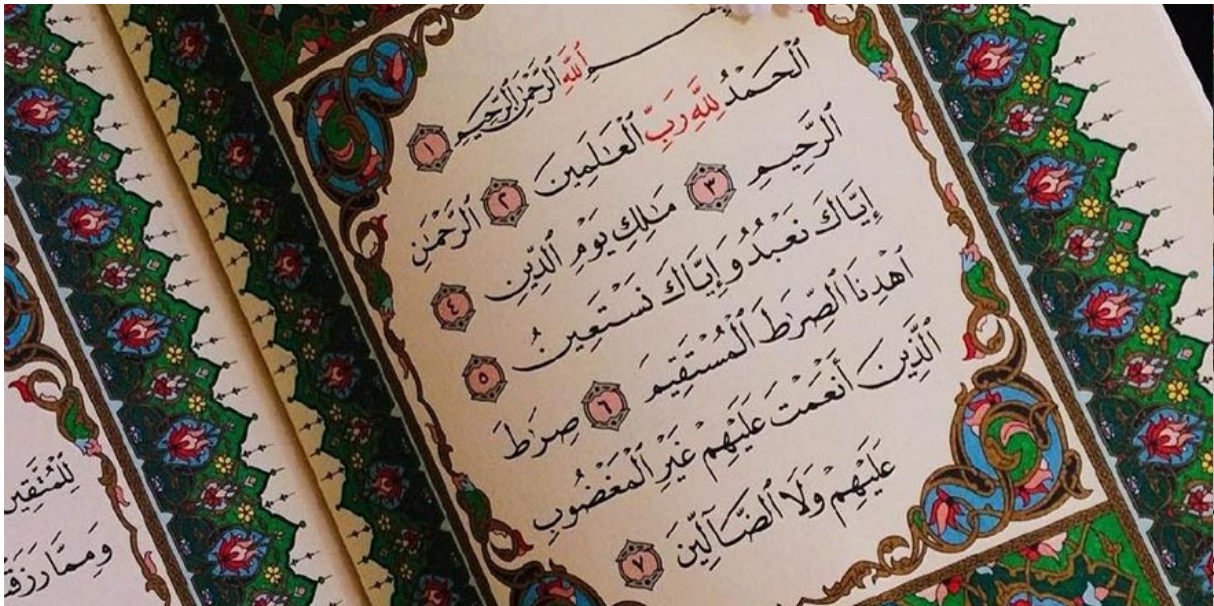 بِسْمِ ٱللَّهِ ٱلرَّحْمَٰنِ ٱلرَّحِيمِ ١
ٱلْحَمْدُ لِلَّهِ رَبِّ ٱلْعَٰلَمِينَ ٢ ٱلرَّحْمَٰنِ
ٱلرَّحِيمِ ٣ مَٰلِكِ يَوْمِ ٱلدِّينِ ٤
إِيَّاكَ نَعْبُدُ وَإِيَّاكَ نَسْتَعِينُ ٥
ٱهْدِنَا ٱلصِّرَٰطَ ٱلْمُسْتَقِيمَ ٦ صِرَٰطَ
ٱلَّذِينَ أَنْعَمْتَ عَلَيْهِمْ غَيْرِ ٱلْمَغْضُوبِ
عَلَيْهِمْ وَلَا ٱلضَّآلِّينَ ٧
لِّلْمُتَّقِينَ
وَمِمَّا